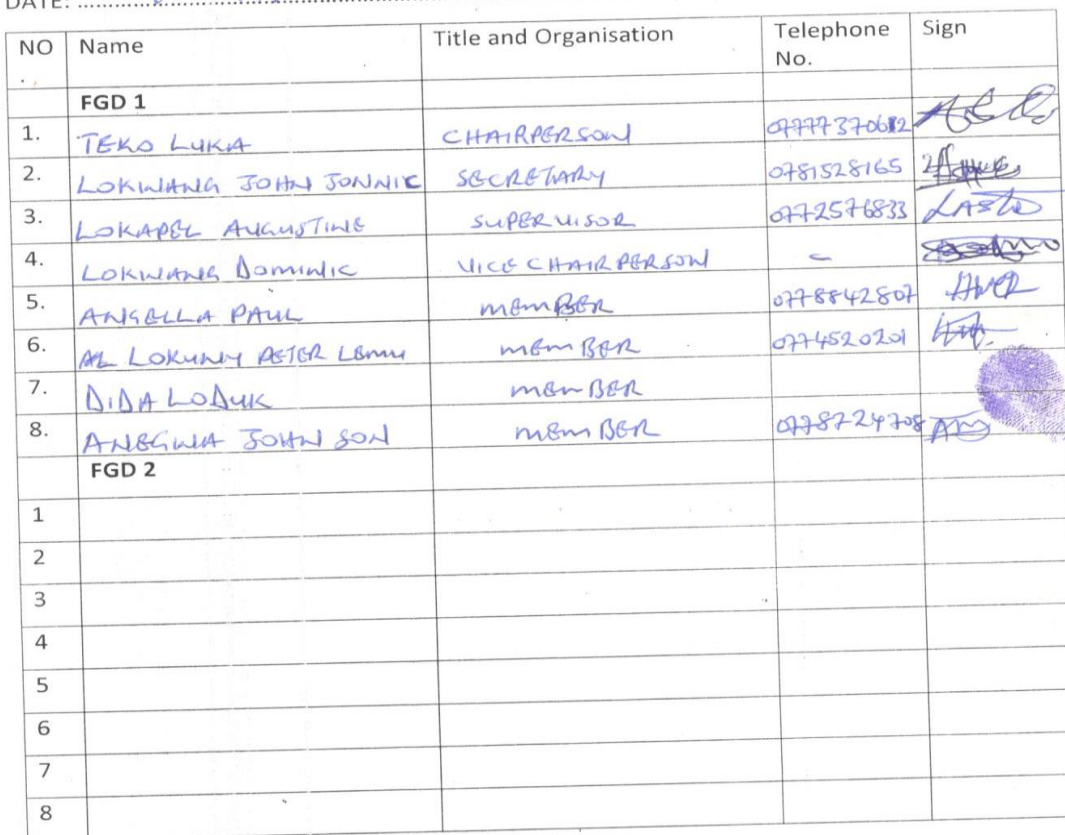 DATE:
NO Name Title and Organisation Telephone Sign
. No.
FGD 1
1. TEKO LUKA CHAIRPERSON
2. LOKWANG JOHN JONNIC SECRETARY 0781528165
3. LOKAPEL AUGUSTINE SUPERVISOR 0772576833 LASTO
4. LOKWANG DOMINIC VICE CHAIRPERSON -
5. ANGELLA PAUL MEMBER 0778842807
6. LOKUNY PETER MEMBER 0774520201
7. DIDA LODUK MEMBER
8. ANEGWA JOHN SON MEMBER 0778724708
FGD 2
1
2
3
4
5
6
7
8